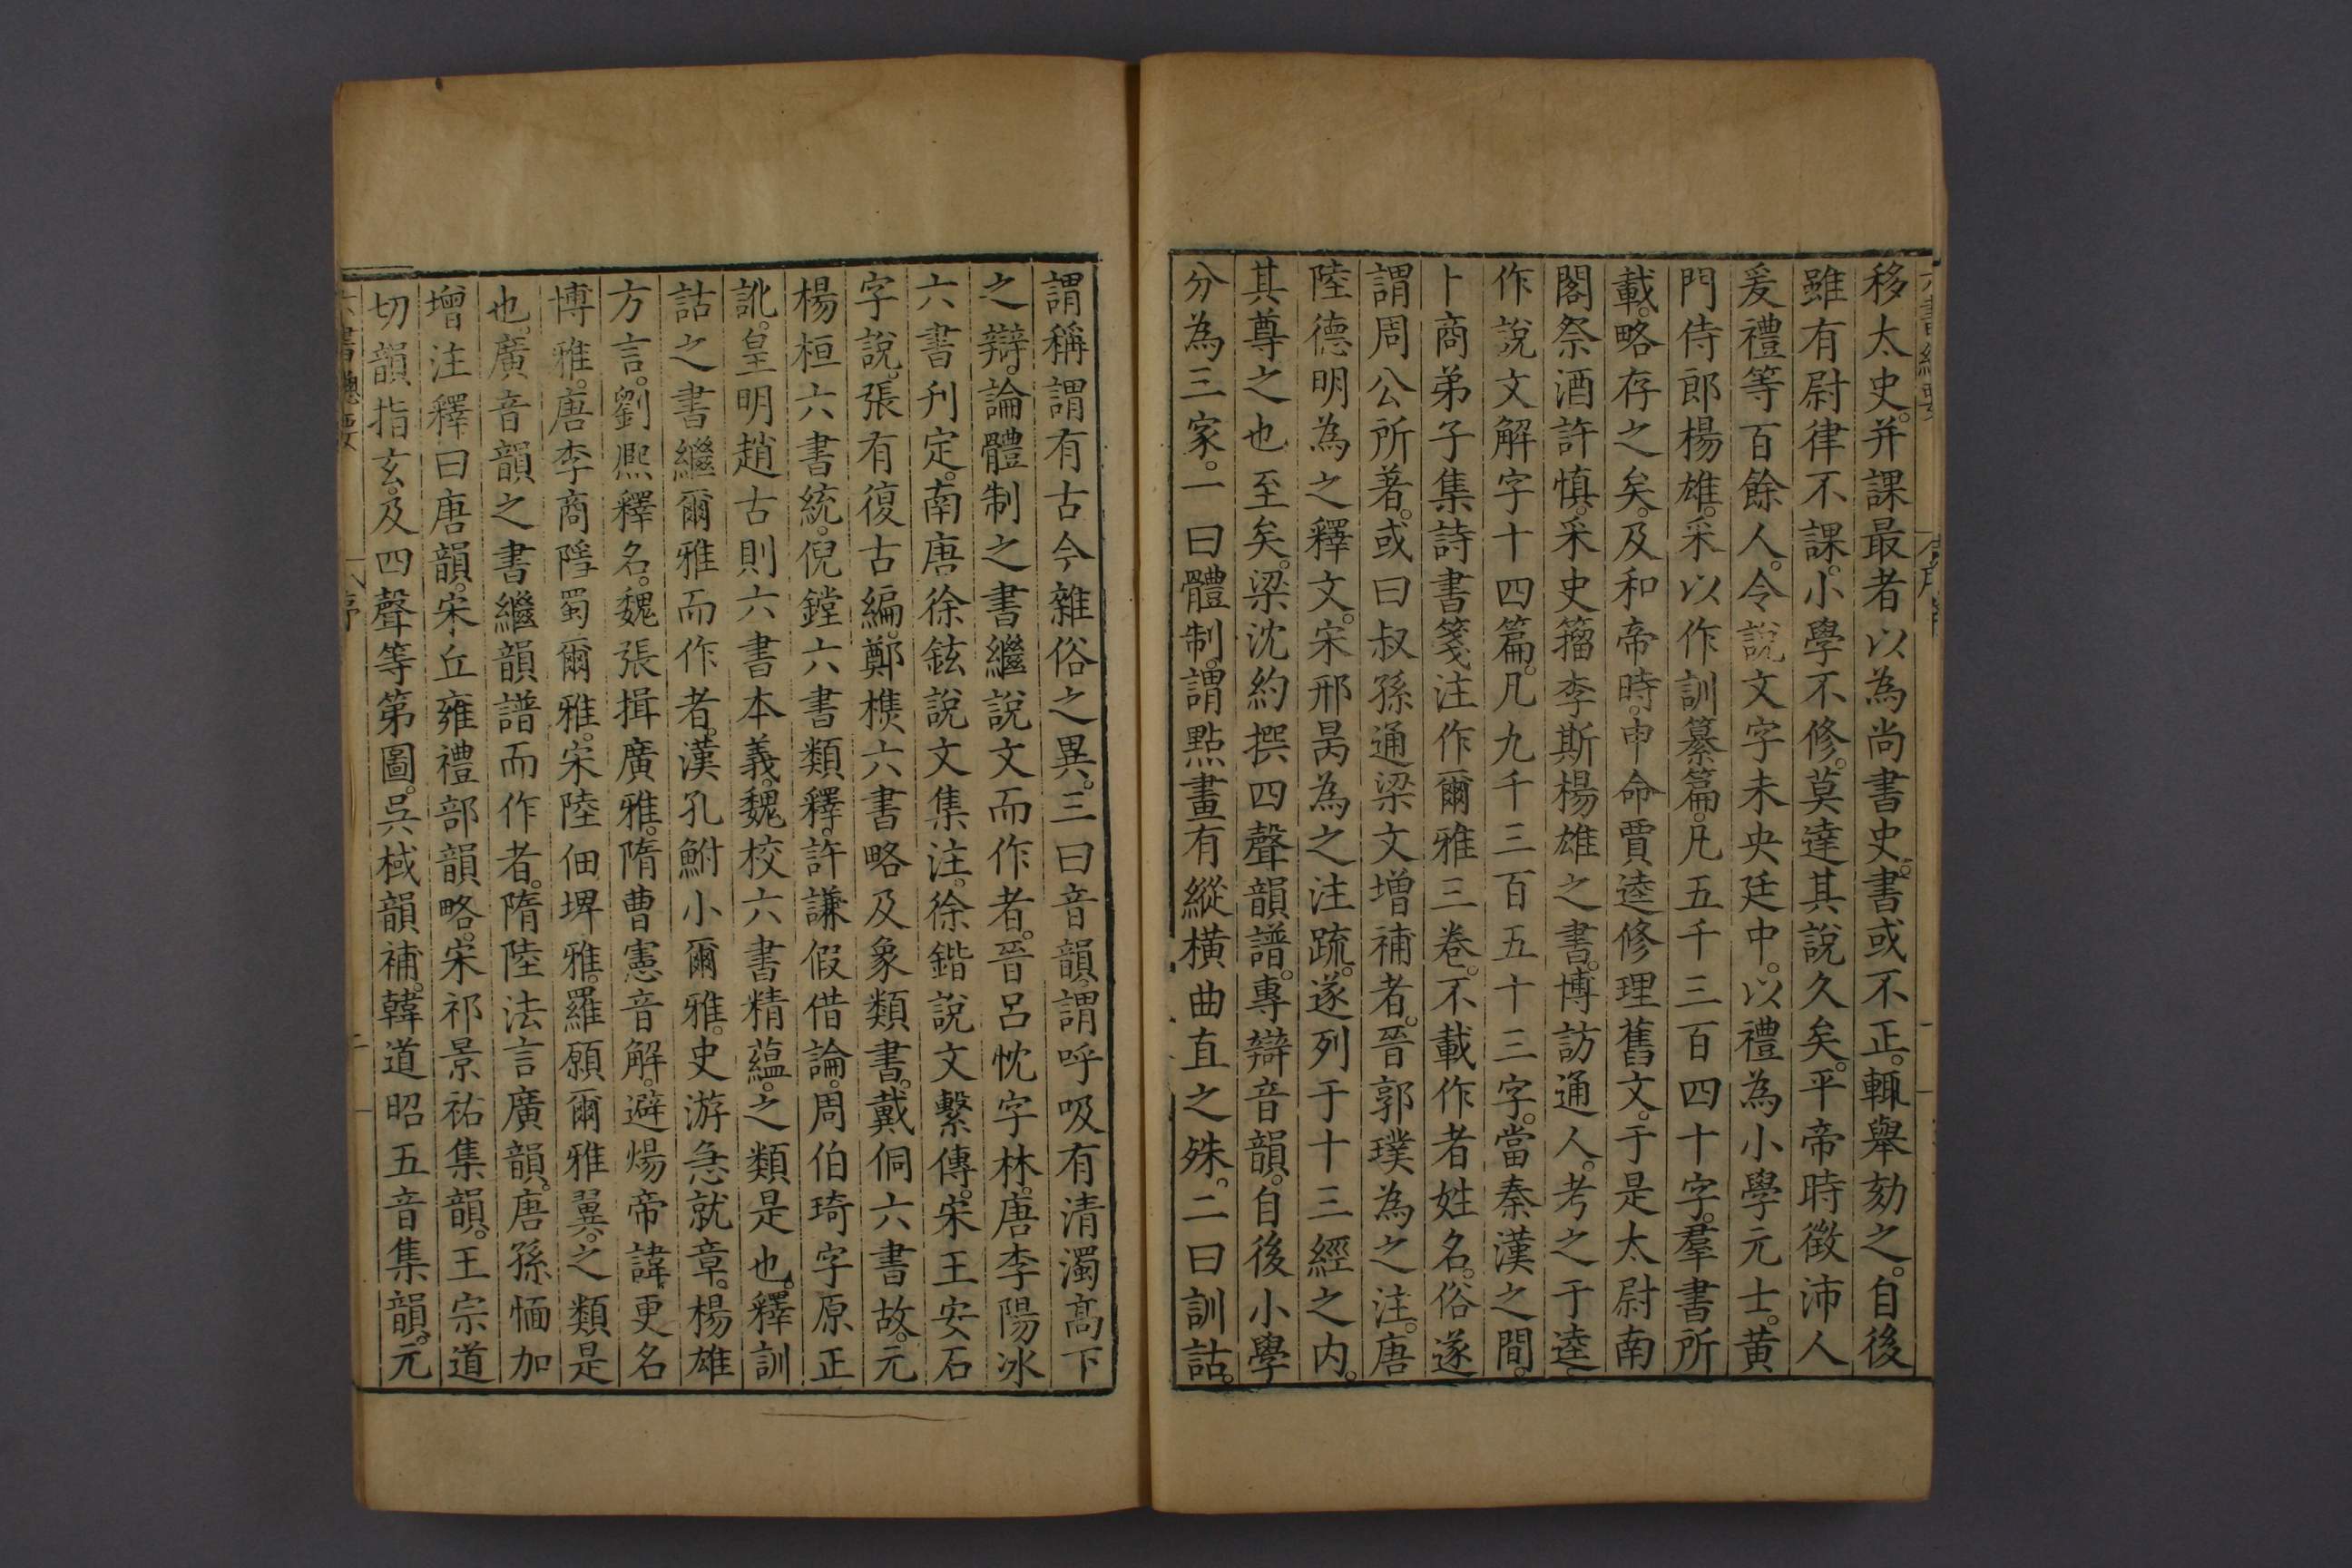 移太史。并課最者以為尚書史。書或不正。輒舉劾之。自後
雖有尉律不課。小學不修。莫達其說久矣。平帝時徵沛人
爰禮等百餘人。令說文字未央廷中。以禮為小學元士。黃
門侍郎楊雄。采以作訓纂篇。凡五千三百四十字。羣書所
載。略存之矣。及和帝時。申命賈逵修理舊文。于是太尉南
閣祭酒許慎。采史籀李斯楊雄之書。博訪通人。考之于逵
作說文解字十四篇。凡九千三百五十三字。當秦漢之間。
卜商弟子集詩書箋注作爾雅三卷。不載作者姓名。俗遂
謂周公所著。或曰叔孫通梁文增補者。晉郭璞為之注。唐
陸德明為之釋文。宋邢昺為之注疏。遂列于十三經之内。
其尊之也至矣。梁沈約撰四聲韻譜。專辯音韻。自後小學
分為三家。一曰體制。謂點畫有縱橫曲直之殊。二曰訓詁。
謂稱謂有古今雜俗之異。三曰音韻。謂呼吸有清濁高下
之辯。論體制之書繼說文而作者。晉呂忱字林。唐李陽冰
六書刋定。南唐徐鉉說文集注。徐鍇說文繫傳。宋王安石
字說。張有復古編。鄭樵六書略及象類書。戴侗六書故。元
楊桓六書統。倪鏜六書類釋。許謙假借論。周伯琦字原正
訛。皇明趙古則六書本義。魏校六書精蘊。之類是也。釋訓
詁之書繼爾雅而作者。漢孔鮒小爾雅。史游急就章。楊雄
方言。劉熈釋名。魏張揖廣雅。隋曹憲音解。避煬帝諱。更名
博雅。唐李商隱蜀爾雅。宋陸佃埤雅。羅願爾雅翼。之類是
也。廣音韻之書繼韻譜而作者。隋陸法言廣韻。唐孫愐加
增注釋曰唐韻。宋丘雍禮部韻略。宋祁景祐集韻。王宗道
切韻指玄。及四聲等第圖。吳棫韻補。韓道昭五音集韻。元
六書總要
序
二